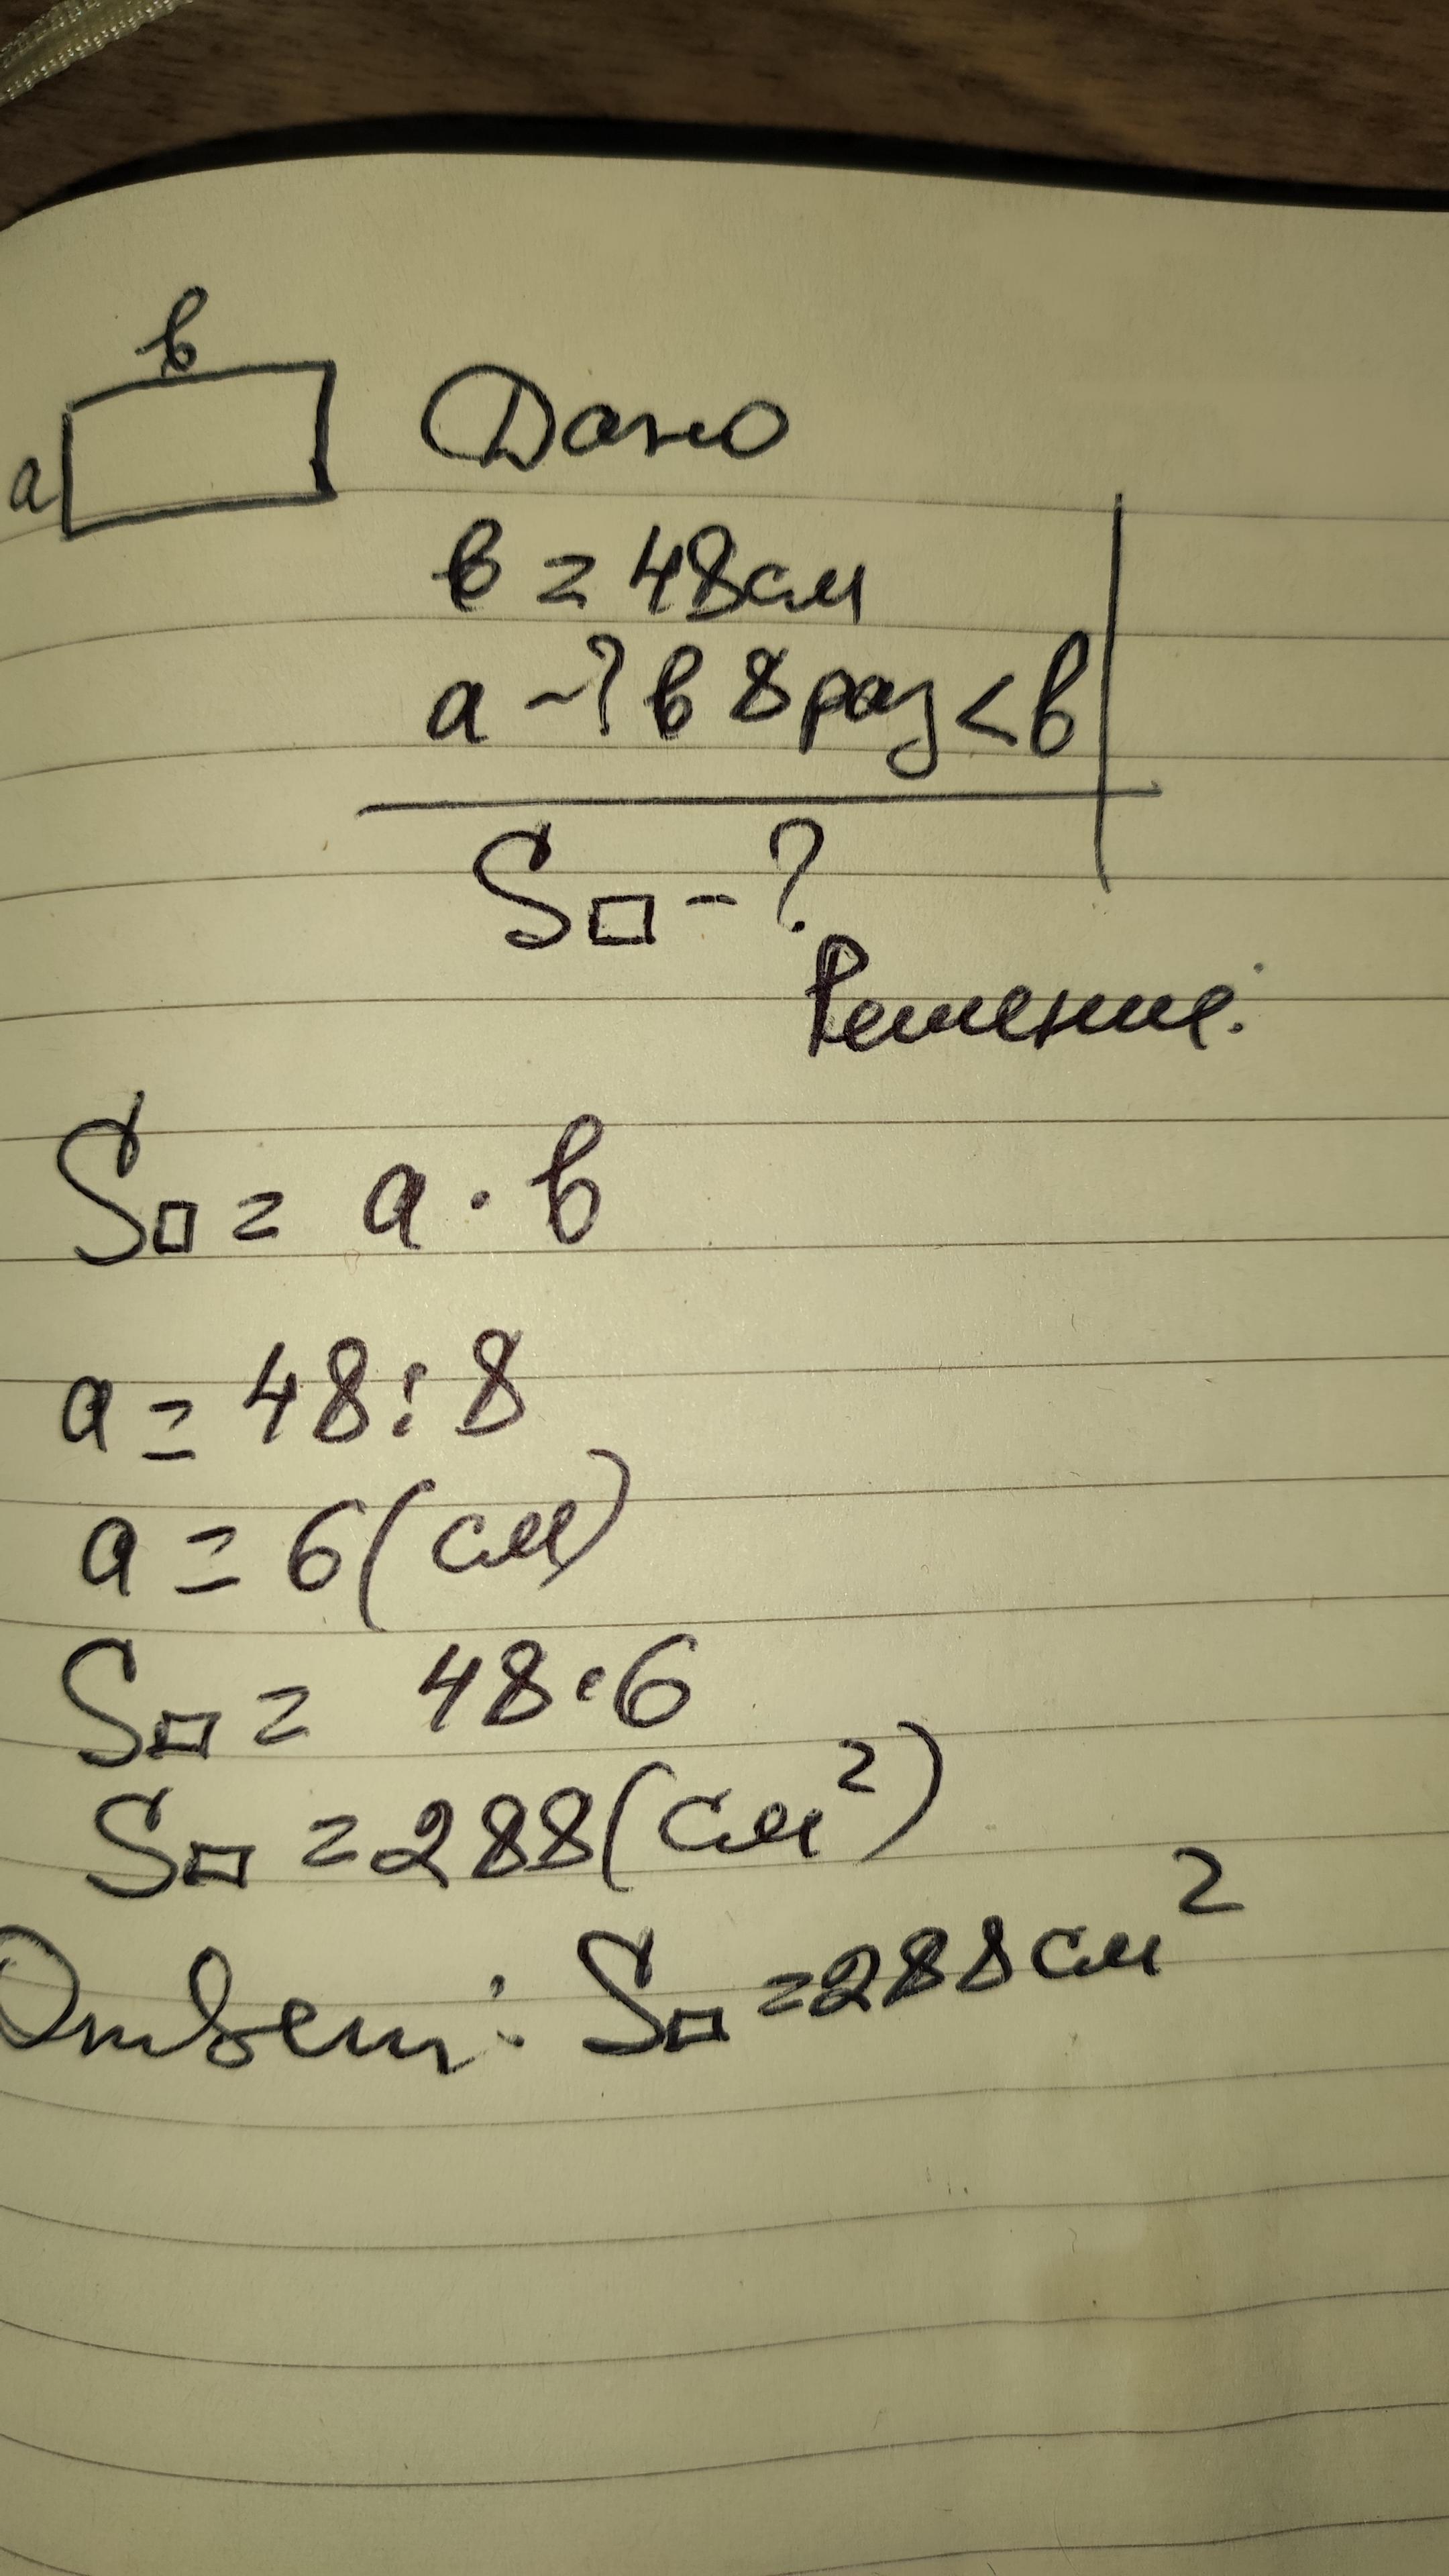 в
а
Дано
в = 48см
а -? в 8 раз < в
S□ - ?
Решение:
S□ = а · в
а = 48 : 8
а = 6 (см)
S□ = 48 · 6
S□ = 288 (см²)
Ответ: S□ = 288 см²